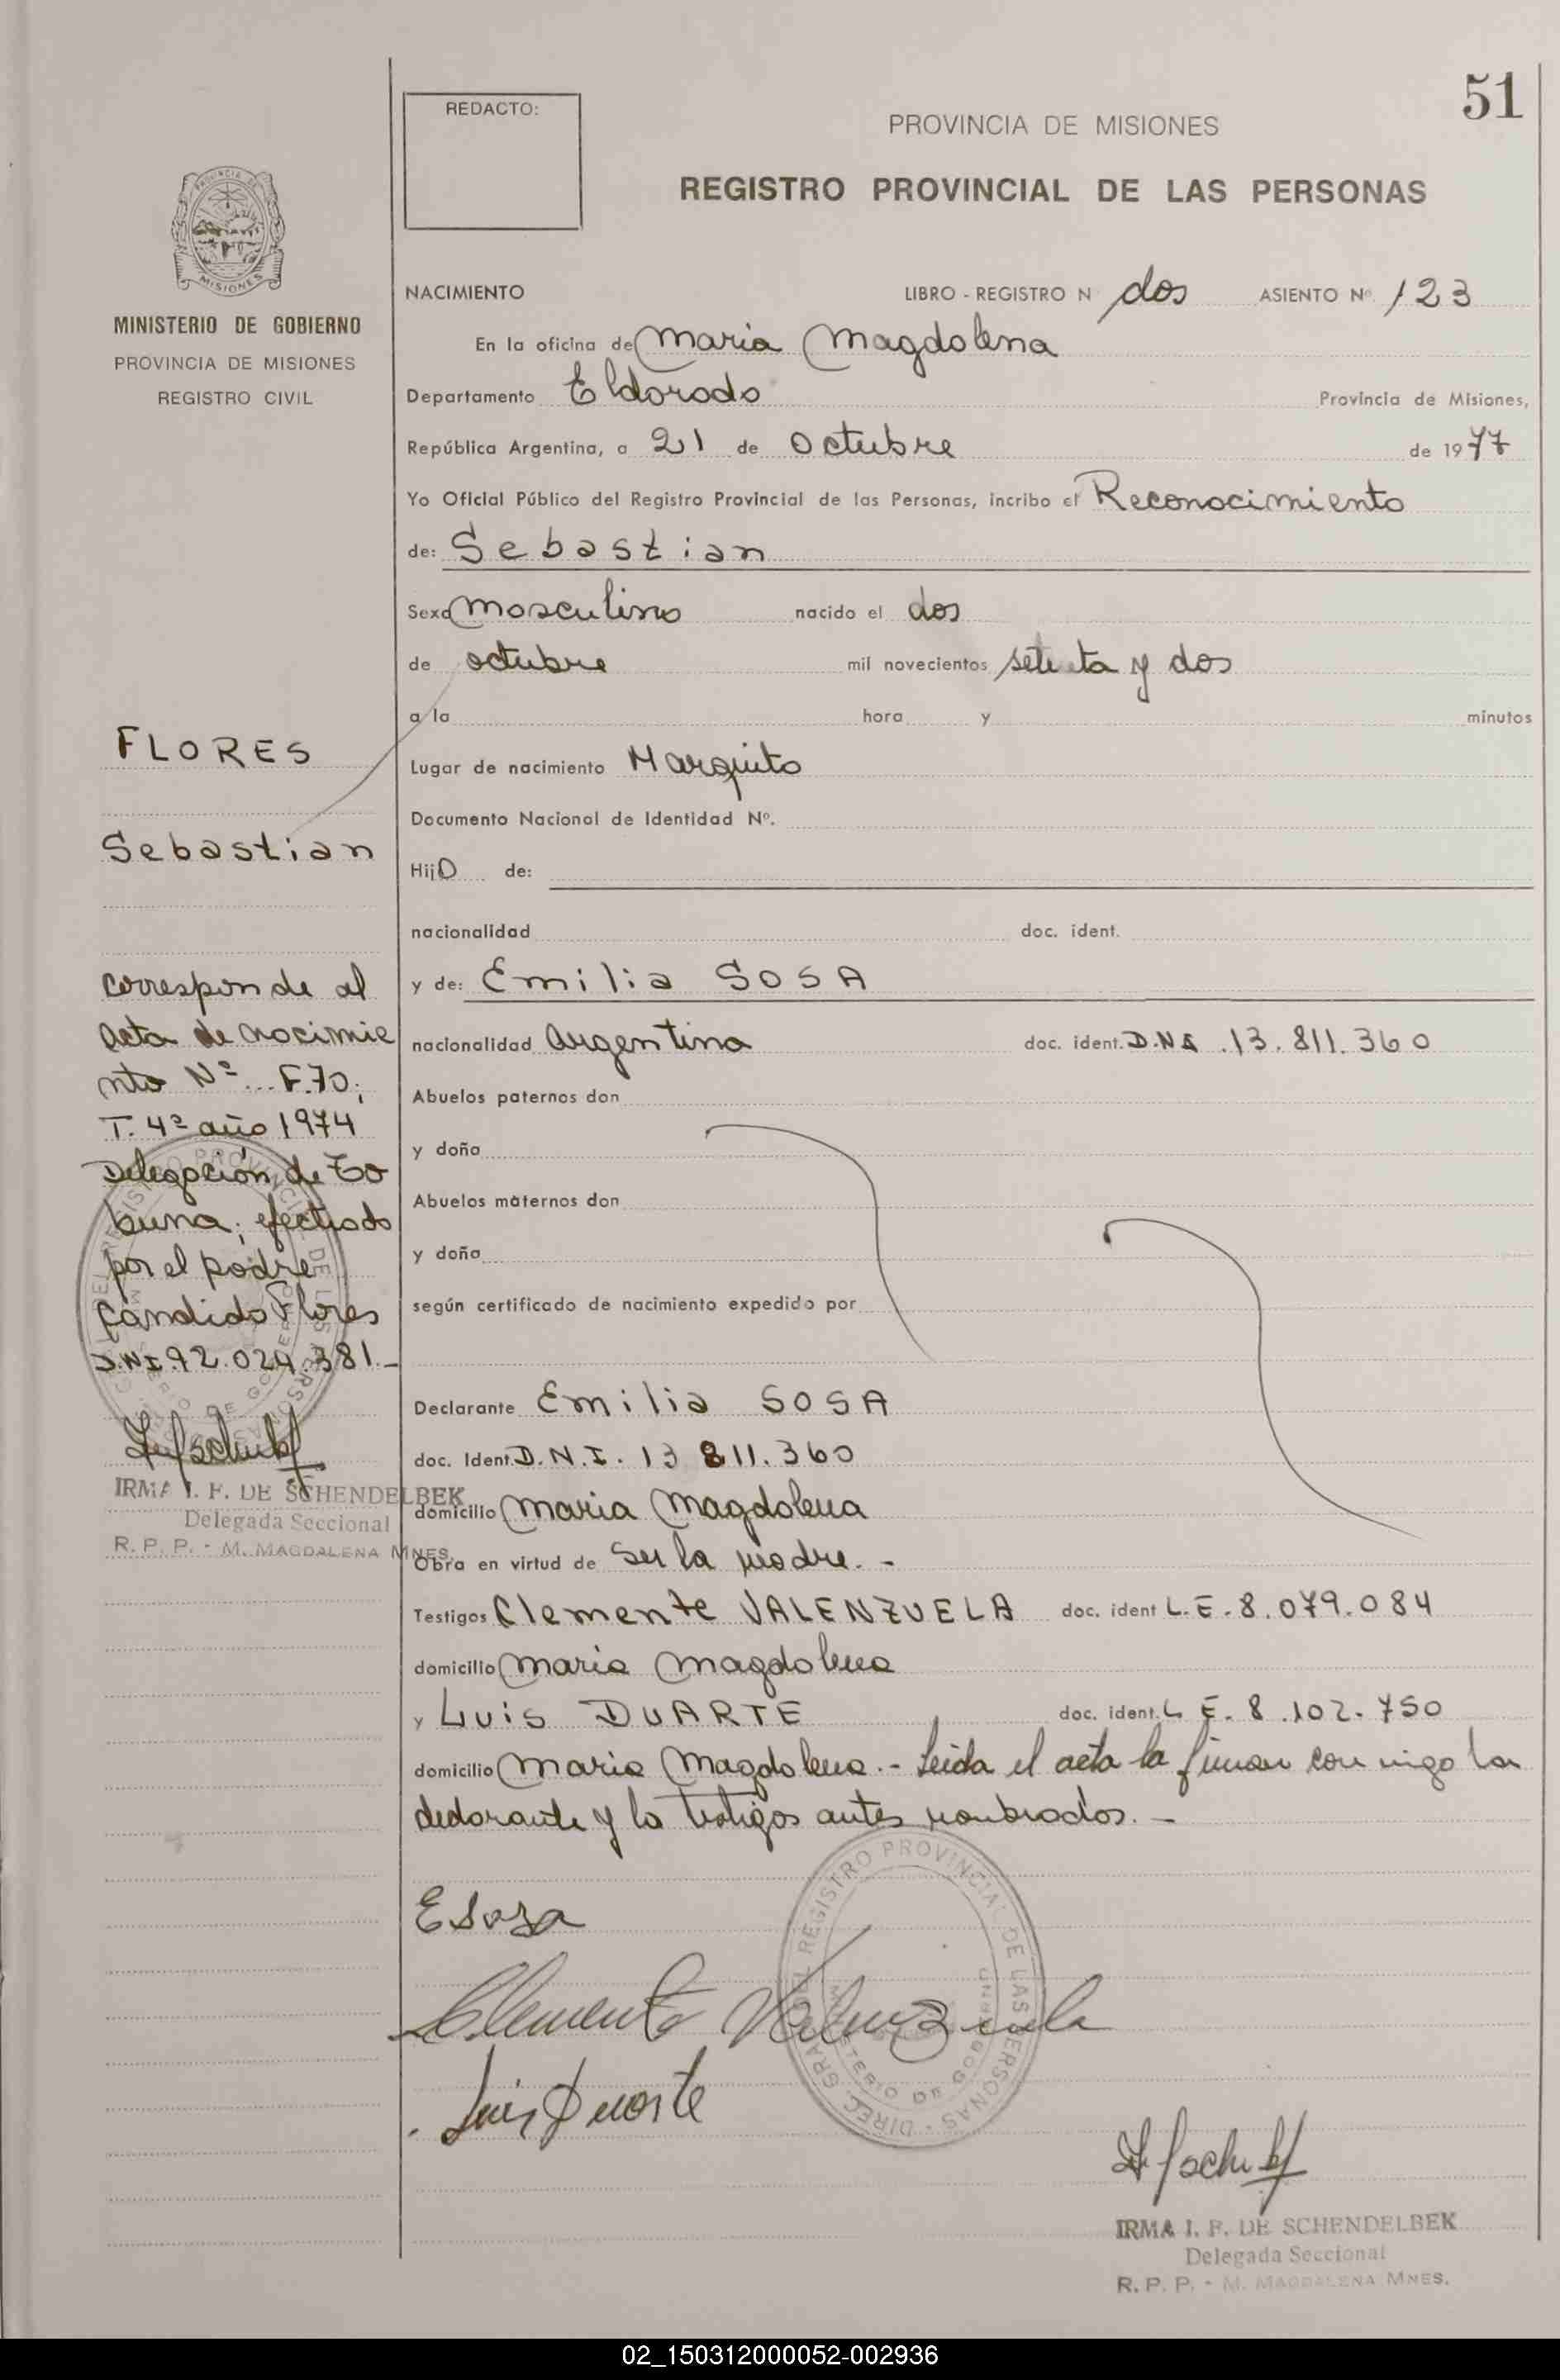 51
REDACTO:
PROVINCIA DE MISIONES
REGISTRO PROVINCIAL DE LAS PERSONAS
MISIONES
MINISTERIO DE GOBIERNO
PROVINCIA DE MISIONES
REGISTRO CIVIL
NACIMIENTO LIBRO - REGISTRO N dos ASIENTO Nº 123
En la oficina de Maria Magdalena
Departamento Eldorado Provincia de Misiones,
República Argentina, a 21 de Octubre de 1977
Yo Oficial Público del Registro Provincial de las Personas, incribo el Reconocimiento
de: Sebastian
Sexo masculino nacido el dos
de octubre mil novecientos setenta y dos
a la hora y minutos
Lugar de nacimiento Marquito
Documento Nacional de Identidad Nº.
Hijo de:
nacionalidad doc. ident.
y de: Emilia SOSA
nacionalidad Argentina doc. ident. D.N.I. 13.811.360
Abuelos paternos don
y doña
Abuelos maternos don
y doña
según certificado de nacimiento expedido por
Declarante Emilia SOSA
doc. Ident. D.N.I. 13 811.360
domicilio Maria Magdalena
Obra en virtud de ser la madre. -
Testigos Clemente VALENZUELA doc. ident L.E. 8.079.084
domicilio Maria Magdalena
y Luis DUARTE doc. ident. L E. 8.102.750
domicilio Maria Magdalena. - Leida el acta la firman con migo la
declarante y lo testigos antes nombrados. -
FLORES
Sebastian
corresponde al
acta de nacimie
nto Nº F.70,
T. 4º año 1974
Delegación de To
buna, efectuado
por el padre
Cándido Flores
D.N.I. 92.024.381.-
IRMA I. F. DE SCHENDELBEK
Delegada Seccional
R. P. P. - M. MAGDALENA MNES.
E Sosa
Clemente Valenzuela
Luis Duarte
DIREC. GRAL. DEL REGISTRO PROVINCIAL DE LAS PERSONAS
MINISTERIO DE GOBIERNO
IRMA I. F. DE SCHENDELBEK
Delegada Seccional
R. P. P. - M. MAGDALENA MNES.
02_150312000052-002936